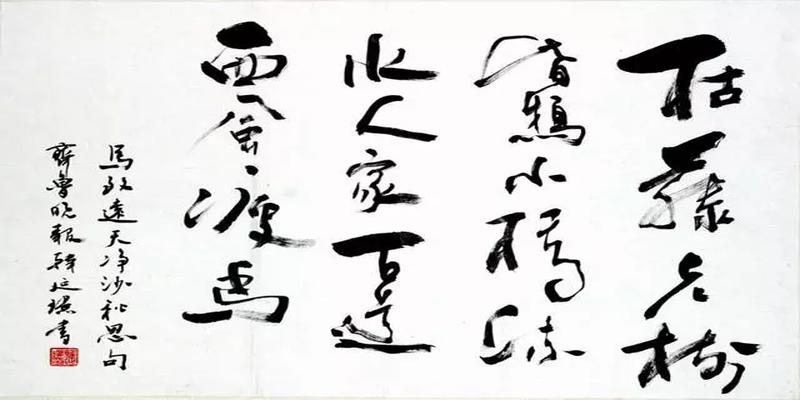 枯藤老樹
昏鴉小橋流
水人家古道
西風瘦馬
馬致遠天净沙秋思句
齊魯晚報書